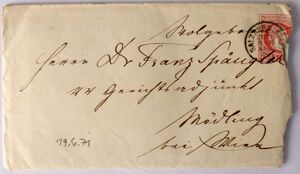 Wolgebo
Herrn Dr Franz Spängler
kk Gerichtsadjunkt
Mödling
bei Wien
19.6.71